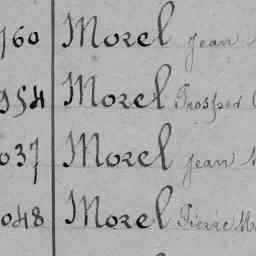 760 Morel Jean
954 Morel Prosper
037 Morel Jean
048 Morel Pierre